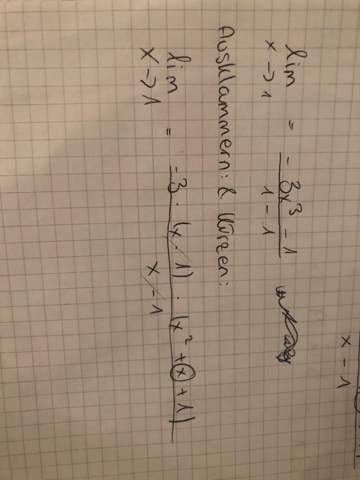 lim = - 3x³ - 1
x → 1 1 - 1
Ausklammern: & Kürzen:
lim = -3 · (x - 1) · (x² + x + 1)
x → 1 x - 1
x - 1